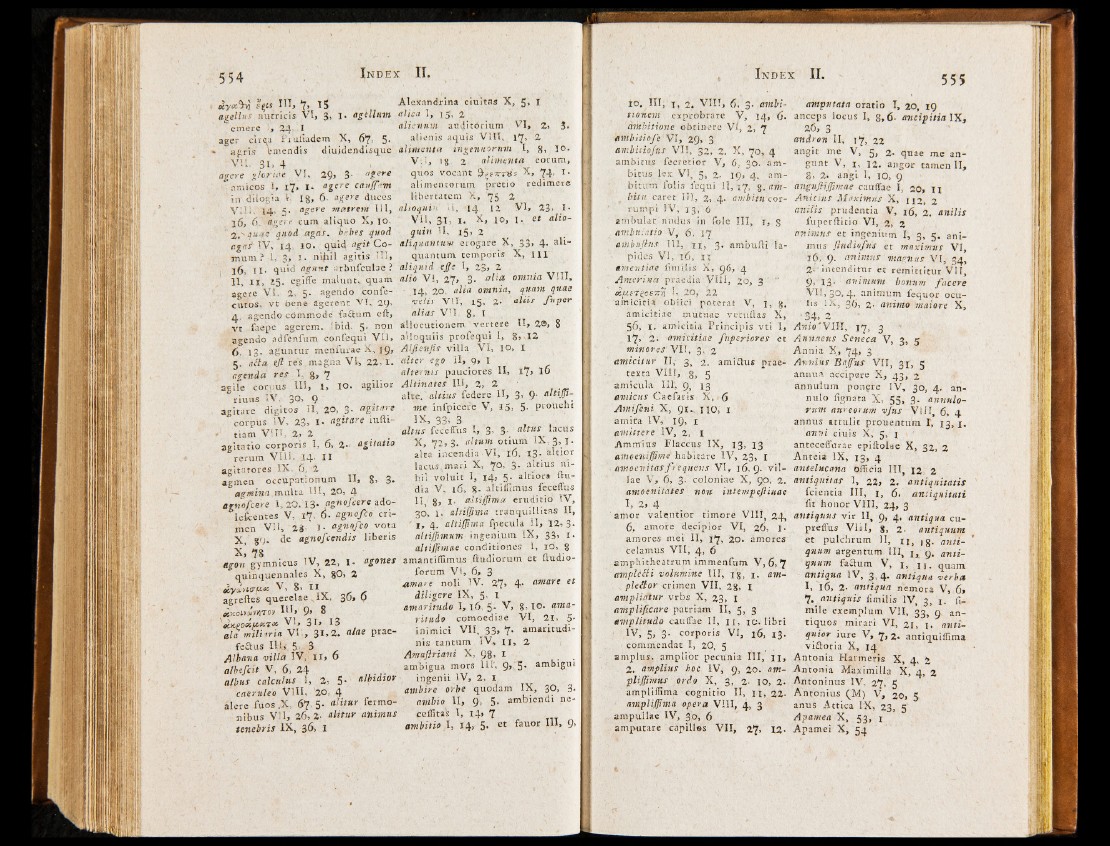 554
INDEX II.
ἀγαθὴ ἔρις III, 7, 15
agellus nutricis VI, 3, 1. agellum
emere , 24. 1
ager circa Prusiadem X, 67. 5.
agris emendis diuidendisque
VII. 31, 4
agere gloriae VI, 29, 3. agere
amicos I, 17, 1. agere caussam
in dilogia I, 18, 6. agere duces
VIII. 14. 5. agere matrem III,
16, 6. agere cum aliquo X, 10.
2. quae quod agas. habes quod
agas IV, 14. 10. quid agit Co-
mum? I, 3, 1. nihil agitis III,
16, 11. quid agunt arbusculae?
II, 11, 25. egisse malunt, quam
agere VI. 2, 5. agendo conse-
cutos, vt bene agerent VI, 29,
4. agendo commode factum est,
vt saepe agerem. ibid. 5. non
agendo adsensum consequi VII,
6, 13. aguntur mensurae X, 19,
5. acta est res magna VI, 22. 1.
agenda res I, 8, 7
agile corpus III, 1, 10. agilior
rhius IV. 30, 9
agitare digitos II, 20, 3. agitare
corpus IV. 23, 1. agitare iusti-
tiam VIII, 2, 2
agitatio corporis I, 6, 2. agitatio
rerum VIII. 14. 11
agitatores IX. 6, 2
agmen occupationum II, 8, 3.
agmina multa III, 20, 4
agnoscere I, 20. 13. agnoscere ado-
lescentes V, 17. 6. agnosco cri-
men VII, 28. 1. agnosco vota
X, 89. de agnoscendis liberis
X, 78
agon gymnicus IV, 22, 1. agones
quinquennales X, 80, 2
ἀγώνισμα V, 8, 11
agrestes querelae IX, 36, 6
III, 9, 8
VI, 31, 13
ala militaria VI, 31. 2. alae prae-
fectus III, 5, 3
Albana villa IV, 11, 6
albescit V, 6, 24
albus calculus I, 2, 5. albidior
caeruleo VIII. 20, 4
alere suos X, 67. 5. alitur sermo-
nibus VII, 26, 2. alitur animus
tenebris IX, 36, 1
Alexandrina ciuitas X, 5, 1
alica I, 15. 2
alienum auditorium VI, 2, 3.
alienis aquis VIII. 17, 2
alimenta ingenuorum I, 8, 10.
VII, 18 2 alimenta eorum,
quos vocant θρεπτοὺς X, 74, 1.
alimentorum pretio redimere
libertatem X, 75 2
alioquin II, 14, 12 VI, 23, 1.
VII, 31, 1. X, 10, 1. et alio-
quin II, 15, 2
aliquantum erogare X, 33, 4. ali-
quantum temporis X, 111
aliquid esse I, 23, 2
alio VI, 27, 3. alia omnia VIII,
14, 20. alia omnia, quam quae
velis VII, 15, 2. aliis super
alias VII. 8, 1
allocutionem vertere II, 20, 8
alloquiis prosequi I, 8, 12
Alsiensis villa VI, 10, 1
alter ego II, 9, 1
alternis pauciores II, 17, 16
Altinates III, 2, 2
alte, altius sedere II, 3, 9. altissi-
me inspicere V, 15, 5. pronehi
IX, 33, 3
altus secessus I, 3, 3. altus lacus
X, 72, 3. altum otium IX. 3, 1.
alta incendia VI, 16, 13. altior
lacus mari X, 70, 3. altius ni-
hil voluit I, 14, 5. altiora stu-
dia V, 16, 8. altissimus secessus
II, 8, 1. altissima eruditio IV,
30, 1. altissima tranquillitas II,
1, 4. altissima specula II, 12, 3.
altissimum ingenium IX, 33, 1.
altissimae conditiones I, 10, 8
amantissimus studiorum et studio-
sorum VI, 6, 3
amare noli IV. 27, 4. amare et
diligere IX, 5, 1
amaritudo I, 16, 5. V, 8, 10. ama-
ritudo comoediae VI, 21, 5.
inimici VII, 33, 7. amaritudi-
nis tantum IV, 11, 2
Amastriani X, 98, 1
ambigua mors III, 9, 5. ambigui
ingenii IV, 2, 1
ambire orbe quodam IX, 30, 3.
ambio II, 9, 5. ambiendi ne-
cessitas I, 14, 7
ambitio I, 14, 5. et fauor III, 9,
INDEX II.
555
10. III, 1, 2. VIII, 6, 3. ambi-
tionem exprobrare V, 14, 6.
ambitione obtinere VI, 2, 7
ambitiose VI, 29, 3
ambitiosus VII, 32, 2. X, 70, 4
ambitus secretior V, 6, 30. am-
bitus lex VI, 5, 2. 19, 4. am-
bitum folia sequi II, 17. 8. am-
bitu caret III, 2, 4. ambitu cor-
rumpi IV, 13, 6
ambulat nudus in sole III, 1, 8
ambulatio V, 6, 17
ambustus III, 11, 3. ambusti la-
pides VI, 16, 11
amentiae similis X, 96, 4
Amerina praedia VIII, 20, 3
ἀμετροεπῆ I, 20, 22
amicitia obiici poterat V, 1, 8.
amicitiae mutuae vetustas X,
56, 1. amicitia Principis vti I,
17, 2. amicitiae superiores et
minores VII, 3, 2
amicitur II, 3, 2. amictus prae-
texta VIII, 8, 5
amicula III, 9, 13
amicus Caesaris X, 6
Amiseni X, 91. 110, 1
amita IV, 19, 1
amittere IV, 2, 1
Ammius Flaccus IX, 13, 13
amoenissime habitare IV, 23, 1
amoenitas frequens VI, 16, 9. vil-
lae V, 6, 3. coloniae X, 90, 2.
amoenitates non intempestiuae
I, 2, 4
amor valentior timore VIII, 24,
6. amore decipior VI, 26, 1.
amores mei II, 17, 20. amores
celamus VII, 4, 6
amphitheatrum immensum V, 6, 7
amplecti volumine III, 18, 1. am-
plector crimen VII, 28, 1
ampliatur vrbs X, 23, 1
amplificare patriam II, 5, 3
amplitudo caussae II, 11, 10. libri
IV, 5, 3. corporis VI, 16, 13.
commendat I, 20, 5
amplus. amplior pecunia III, 11,
2. amplius hoc IV, 9, 20. am-
plissimus ordo X, 3, 2. 10, 2.
amplissima cognitio II, 11, 22.
amplissima opera VIII, 4, 3
ampullae IV, 30, 6
amputare capillos VII, 27, 12.
amputata oratio I, 20, 19
anceps locus I, 8, 6. ancipitia IX,
26, 3
andron II, 17, 22
angit me V, 5, 2. quae me an-
gunt V, 1, 12. angor tamen II,
8, 2. angi I, 10, 9
angustissimae caussae I, 20, 11
Anicius Maximus X, 112, 2
anilis prudentia V, 16, 2. anilis
superstitio VI, 2, 2
animus et ingenium I, 3, 5. ani-
mus studiosus et maximus VI,
16, 9. animus magnus VI, 34,
2. intenditur et remittitur VII,
9, 13. animum bonum facere
VII, 30, 4. animum sequor ocu-
lis IX, 36, 2. animo maiore X,
34, 2
Anio VIII. 17, 3
Annaeus Seneca V, 3, 5
Annia X, 74, 3
Annius Bassus VII, 31, 5
annua accipere X, 43, 2
annulum ponere IV, 30, 4. an-
nulo signata X, 55, 3. annulo-
rum aureorum vsus VIII, 6, 4
annus attulit prouentum I, 13, 1.
anni ciuis X, 5, 1
antecessurae epistolae X, 32, 2
Anteia IX, 13, 4
antelucana officia III, 12 2
antiquitas I, 22, 2. antiquitatis
scientia III, 1, 6. antiquitati
sit honor VIII, 24, 3
antiquus vir II, 9, 4. antiqua cu-
pressus VIII, 8, 2. antiquum
et pulchrum II, 11, 18. anti-
quum argentum III, 1, 9. anti-
quum factum V, 1, 11. quam
antiqua IV, 3, 4. antiqua verba
I, 16, 2. antiqua nemora V, 6,
7. antiquis similis IV, 3, 1. si-
mile exemplum VII, 33, 9. an-
tiquos mirari VI, 21, 1. anti-
quior iure V, 7, 2. antiquissima
victoria X, 14
Antonia Harmeris X, 4, 2
Antonia Maximilla X, 4, 2
Antoninus IV. 27, 5
Antonius (M) V, 20, 5
anus Attica IX, 23, 5
Apamea X, 53, 1
Apamei X, 54